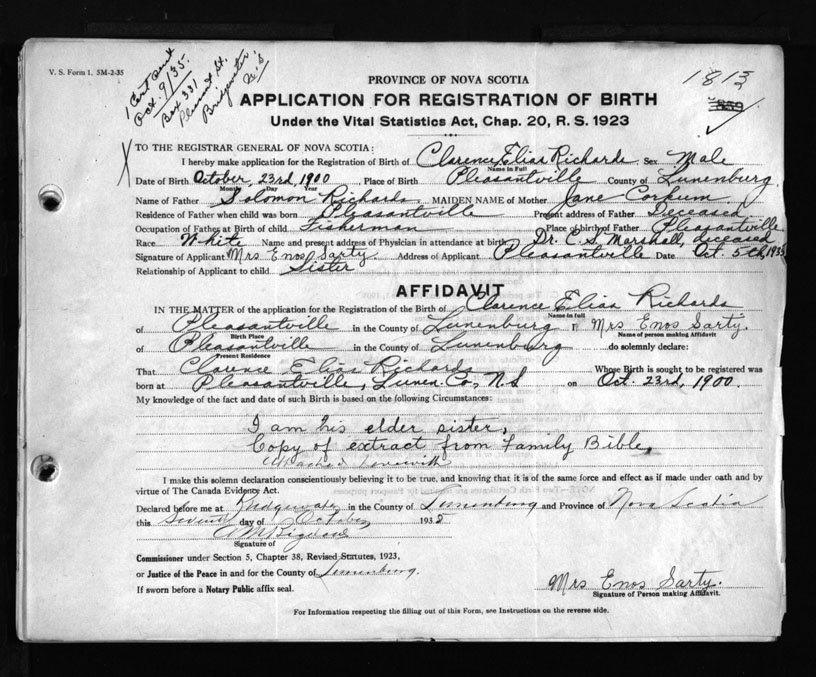 V. S. Form 1. 5M-2-35
1 Cert Sent
Oct. 9/35.
Box 331
Pleasant St.
Bridgewater
N.S
1813
PROVINCE OF NOVA SCOTIA
APPLICATION FOR REGISTRATION OF BIRTH
Under the Vital Statistics Act, Chap. 20, R. S. 1923
TO THE REGISTRAR GENERAL OF NOVA SCOTIA:
I hereby make application for the Registration of Birth of Clarence Elias Richards Sex Male
Name in Full
Date of Birth October, 23rd, 1900, Place of Birth Pleasantville County of Lunenburg
Month Day Year
Name of Father Solomon Richards MAIDEN NAME of Mother Jane Corkum
Residence of Father when child was born Pleasantville Present address of Father Deceased
Occupation of Father at Birth of child Fisherman Place of birth of Father Pleasantville
Race White Name and present address of Physician in attendance at birth Dr. C. S. Marshall, deceased
Signature of Applicant Mrs Enos Sarty Address of Applicant Pleasantville Date Oct. 5th, 1935
Relationship of Applicant to child Sister
AFFIDAVIT
IN THE MATTER of the application for the Registration of the Birth of Clarence Elias Richards
Name in full
of Pleasantville in the County of Lunenburg I Mrs Enos Sarty.
Birth Place Name of person making Affidavit
of Pleasantville in the County of Lunenburg do solemnly declare:
Present Residence
That Clarence Elias Richards Whose Birth is sought to be registered was
born at Pleasantville, Lunen. Co, N.S on Oct. 23rd, 1900.
My knowledge of the fact and date of such Birth is based on the following Circumstances:
I am his elder sister,
Copy of extract from Family Bible,
attached herewith
I make this solemn declaration conscientiously believing it to be true, and knowing that it is of the same force and effect as if made under oath and by
virtue of The Canada Evidence Act.
Declared before me at Bridgewater in the County of Lunenburg and Province of Nova Scotia
this Seventh day of October 1935
Signature of
Commissioner under Section 5, Chapter 38, Revised Statutes, 1923,
or Justice of the Peace in and for the County of Lunenburg.
If sworn before a Notary Public affix seal.
Mrs Enos Sarty.
Signature of Person making Affidavit.
For Information respecting the filling out of this Form, see Instructions on the reverse side.